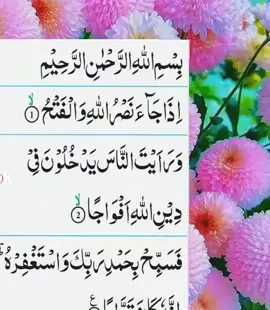 بِسْمِ اللهِ الرَّحْمٰنِ الرَّحِيْمِ
اِذَا جَآءَ نَصْرُ اللهِ وَالْفَتْحُ ۙ ۱
وَرَاَيْتَ النَّاسَ يَدْخُلُوْنَ فِيْ
دِيْنِ اللهِ اَفْوَاجًا ۙ ۲
فَسَبِّحْ بِحَمْدِ رَبِّكَ وَاسْتَغْفِرْهُ